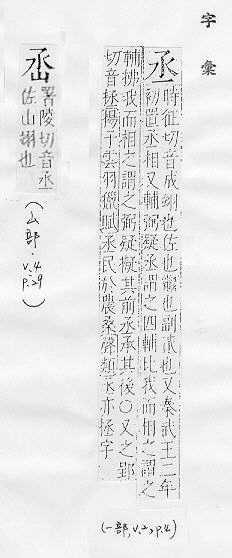 字彙
丞時征切音成翊也佐也繼也副貳也又秦武王二年
初置丞相又輔弼疑丞謂之四輔比我而相之謂之
輔拂我而相之謂之弼疑擬其前丞承其後○又之郢
切音拯揚子雲羽獵賦丞民於農桑薛綜丞亦拯字
(一部,v.2,p.4)
署陵切音丞
佐山翊也
(山部.v.4p.29)